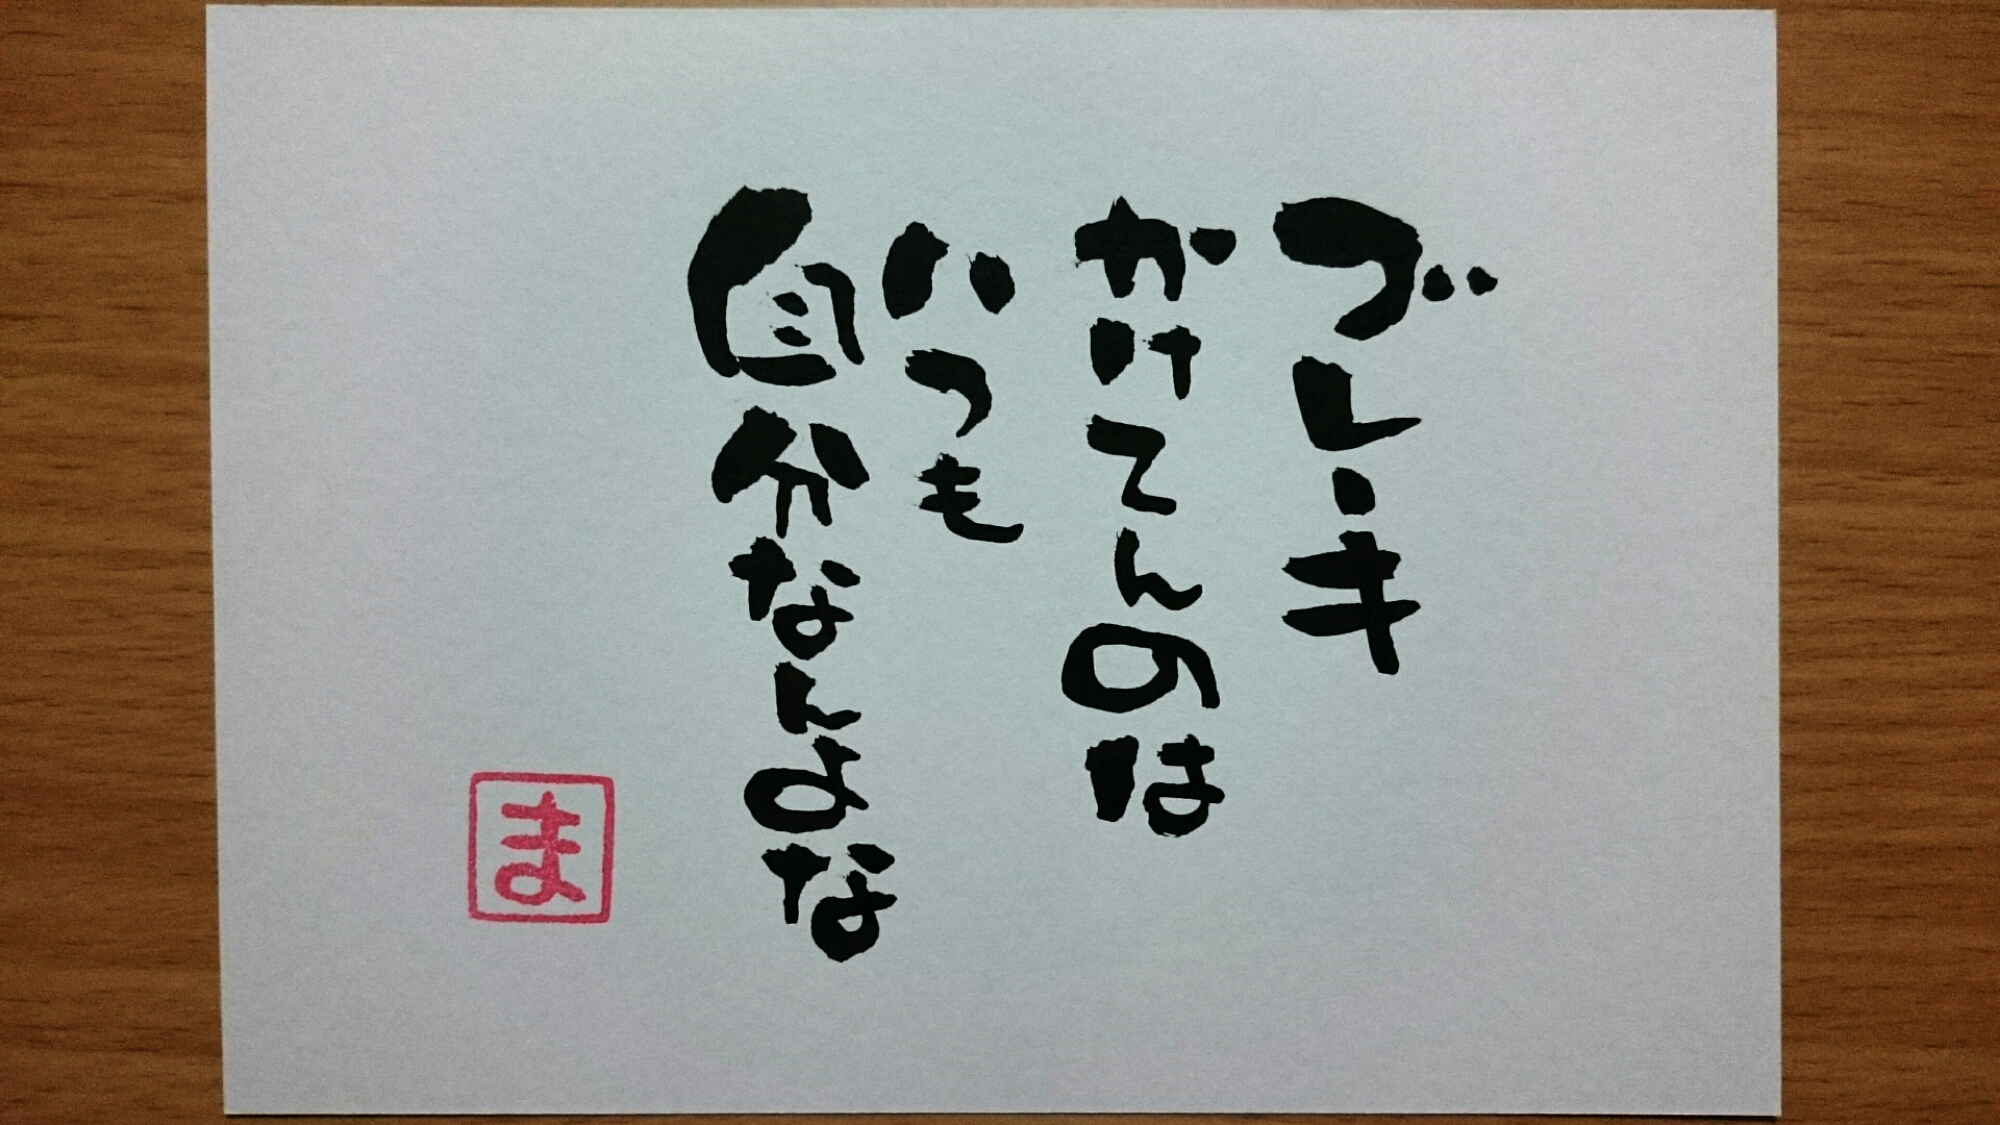 ブレーキ
かけてんのは
いつも
自分なんよな
ま